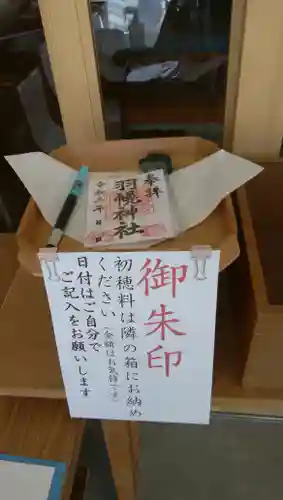 奉拝
羽幌神社
令和三年 月 日
御朱印
初穂料は隣の箱にお納め
ください(金額はお気持です)
日付はご自分で
ご記入をお願いします